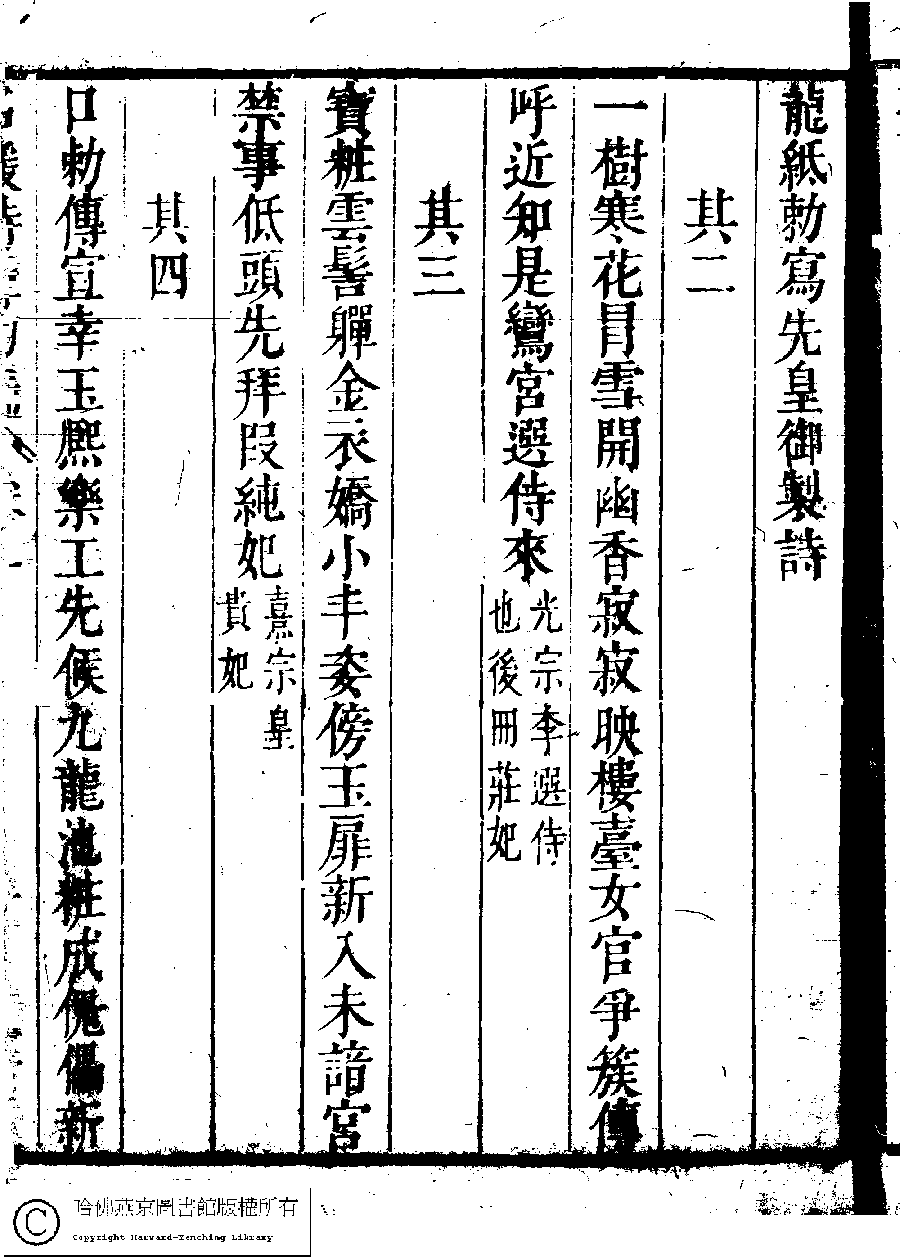 龍紙勅寫先皇御製詩
其二
一樹寒花冒雪開幽香寂寂映樓臺女官爭簇傳
呼近知是鸞宮選侍來光宗李選侍
也後冊莊妃
其三
寶粧雲髻嚲金衣嬌小丰姿傍玉扉新入未諳宮
禁事低頭先拜段純妃熹宗皇
貴妃
其四
口勅傳宣幸玉熈樂工先候九龍池粧成傀儡新
哈佛燕京圖書館版權所有
Copyright Harvard-Yenching Library